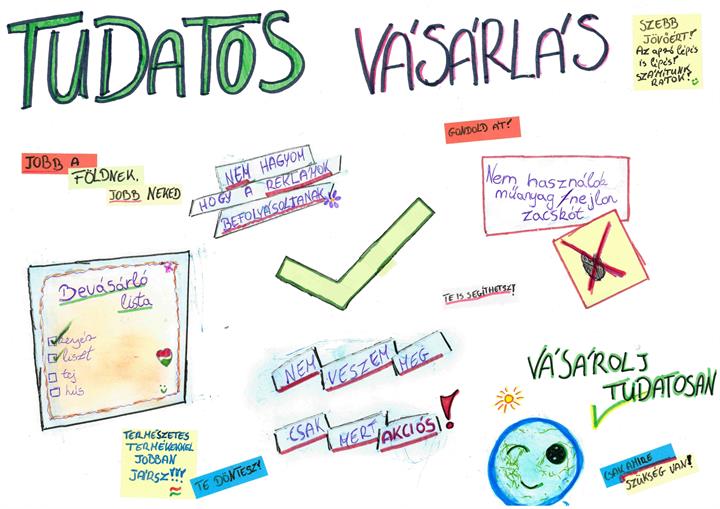 TUDATOS VÁSÁRLÁS
SZEBB
JÖVŐÉRT!
Az apró lépés
is lépés!
SZÁMÍTUNK
RÁTOK!
JOBB A
FÖLDNEK,
JOBB NEKED
NEM HAGYOM
HOGY A REKLÁMOK
BEFOLYÁSOLJANAK
GONDOLD ÁT!
Nem használok
műanyag/nejlon
zacskót
TE IS SEGÍTHETSZ!
Bevásárló
lista
kenyér
liszt
tej
hús
NEM VESZEM MEG
CSAK MERT AKCIÓS!
VÁSÁROLJ
TUDATOSAN
TERMÉSZETES
TERMÉKEKKEL
JOBBAN
JÁRSZ!!!
TE DÖNTESZ!
CSAK AMIRE
SZÜKSÉG VAN!